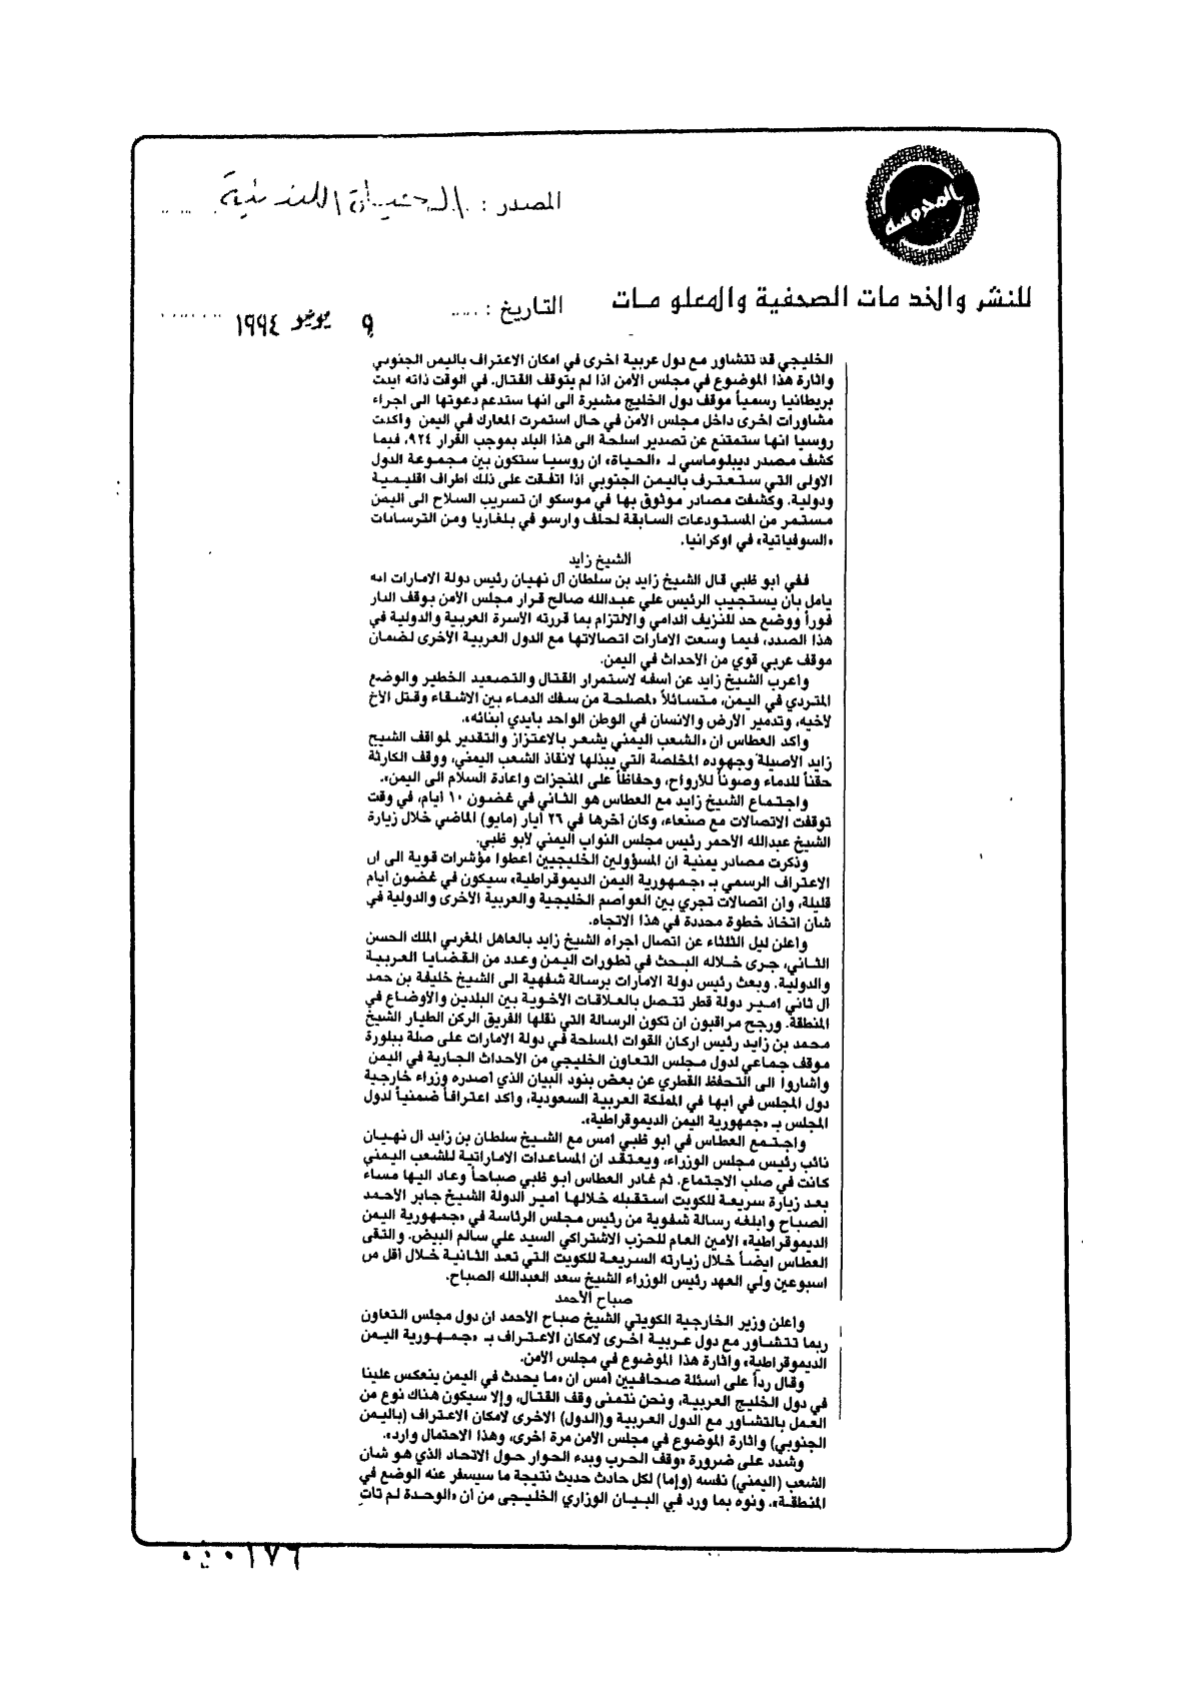 المدوسه
المصدر : الحياة اللندنية
للنشر والخدمات الصحفية والمعلومات
التاريخ : ٩ يونيو ١٩٩٤
الخليجي قد تتشاور مع دول عربية اخرى في امكان الاعتراف باليمن الجنوبي
واثارة هذا الموضوع في مجلس الأمن اذا لم يتوقف القتال. في الوقت ذاته ايدت
بريطانيا رسمياً موقف دول الخليج مشيرة الى انها ستدعم دعوتها الى اجراء
مشاورات اخرى داخل مجلس الأمن في حال استمرت المعارك في اليمن واكدت
روسيا انها ستمتنع عن تصدير اسلحة الى هذا البلد بموجب القرار ٩٢٤، فيما
كشف مصدر ديبلوماسي لـ «الحياة» ان روسيا ستكون بين مجموعة الدول
الاولى التي ستعترف باليمن الجنوبي اذا اتفقت على ذلك اطراف اقليمية
ودولية. وكشفت مصادر موثوق بها في موسكو ان تسريب السلاح الى اليمن
مستمر من المستودعات السابقة لحلف وارسو في بلغاريا ومن الترسانات
«السوفياتية» في اوكرانيا.
الشيخ زايد
ففي ابو ظبي قال الشيخ زايد بن سلطان آل نهيان رئيس دولة الامارات انه
يامل بأن يستجيب الرئيس علي عبدالله صالح قرار مجلس الأمن بوقف النار
فوراً ووضع حد للنزيف الدامي والالتزام بما قررته الأسرة العربية والدولية في
هذا الصدد، فيما وسعت الامارات اتصالاتها مع الدول العربية الأخرى لضمان
موقف عربي قوي من الأحداث في اليمن.
واعرب الشيخ زايد عن اسفه لاستمرار القتال والتصعيد الخطير والوضع
المتردي في اليمن، متسائلاً «لمصلحة من سفك الدماء بين الاشقاء وقتل الأخ
لاخيه، وتدمير الأرض والانسان في الوطن الواحد بايدي ابنائه».
واكد العطاس ان «الشعب اليمني يشعر بالاعتزاز والتقدير لمواقف الشيخ
زايد الاصيلة وجهوده المخلصة التي يبذلها لانقاذ الشعب اليمني، ووقف الكارثة
حقناً للدماء وصوناً للأرواح، وحفاظاً على المنجزات واعادة السلام الى اليمن».
واجتماع الشيخ زايد مع العطاس هو الثاني في غضون ١٠ أيام، في وقت
توقفت الاتصالات مع صنعاء، وكان آخرها في ٢٦ أيار (مايو) الماضي خلال زيارة
الشيخ عبدالله الأحمر رئيس مجلس النواب اليمني لأبو ظبي.
وذكرت مصادر يمنية ان المسؤولين الخليجيين اعطوا مؤشرات قوية الى ان
الاعتراف الرسمي بـ «جمهورية اليمن الديموقراطية» سيكون في غضون أيام
قليلة، وان اتصالات تجري بين العواصم الخليجية والعربية الأخرى والدولية في
شان اتخاذ خطوة محددة في هذا الاتجاه.
واعلن ليل الثلثاء عن اتصال اجراه الشيخ زايد بالعاهل المغربي الملك الحسن
الثاني، جرى خلاله البحث في تطورات اليمن وعدد من القضايا العربية
والدولية. وبعث رئيس دولة الامارات برسالة شفهية الى الشيخ خليفة بن حمد
آل ثاني امير دولة قطر تتصل بالعلاقات الاخوية بين البلدين والأوضاع في
المنطقة. ورجح مراقبون ان تكون الرسالة التي نقلها الفريق الركن الطيار الشيخ
محمد بن زايد رئيس اركان القوات المسلحة في دولة الامارات على صلة ببلورة
موقف جماعي لدول مجلس التعاون الخليجي من الأحداث الجارية في اليمن
واشاروا الى التحفظ القطري عن بعض بنود البيان الذي أصدره وزراء خارجية
دول المجلس في أبها في المملكة العربية السعودية، واكد اعترافاً ضمنياً لدول
المجلس بـ «جمهورية اليمن الديموقراطية».
واجتمع العطاس في ابو ظبي امس مع الشيخ سلطان بن زايد آل نهيان
نائب رئيس مجلس الوزراء، ويعتقد ان المساعدات الاماراتية للشعب اليمني
كانت في صلب الاجتماع. ثم غادر العطاس أبو ظبي صباحاً وعاد اليها مساء
بعد زيارة سريعة للكويت استقبله خلالها امير الدولة الشيخ جابر الأحمد
الصباح وابلغه رسالة شفوية من رئيس مجلس الرئاسة في «جمهورية اليمن
الديموقراطية» الأمين العام للحزب الاشتراكي السيد علي سالم البيض. والتقى
العطاس ايضاً خلال زيارته السريعة للكويت التي تعد الثانية خلال أقل من
اسبوعين ولي العهد رئيس الوزراء الشيخ سعد العبدالله الصباح.
صباح الأحمد
واعلن وزير الخارجية الكويتي الشيخ صباح الأحمد ان دول مجلس التعاون
ربما تتشاور مع دول عربية اخرى لامكان الاعتراف بـ «جمهورية اليمن
الديموقراطية» واثارة هذا الموضوع في مجلس الأمن.
وقال رداً على اسئلة صحافيين أمس ان «ما يحدث في اليمن ينعكس علينا
في دول الخليج العربية، ونحن نتمنى وقف القتال، وإلا سيكون هناك نوع من
العمل بالتشاور مع الدول العربية و(الدول) الاخرى لامكان الاعتراف (باليمن
الجنوبي) واثارة الموضوع في مجلس الأمن مرة اخرى، وهذا الاحتمال وارد».
وشدد على ضرورة «وقف الحرب وبدء الحوار حول الاتحاد الذي هو شان
الشعب (اليمني) نفسه (وإما) لكل حادث حديث نتيجة ما سيسفر عنه الوضع في
المنطقة». ونوه بما ورد في البيان الوزاري الخليجي من أن «الوحدة لم تات